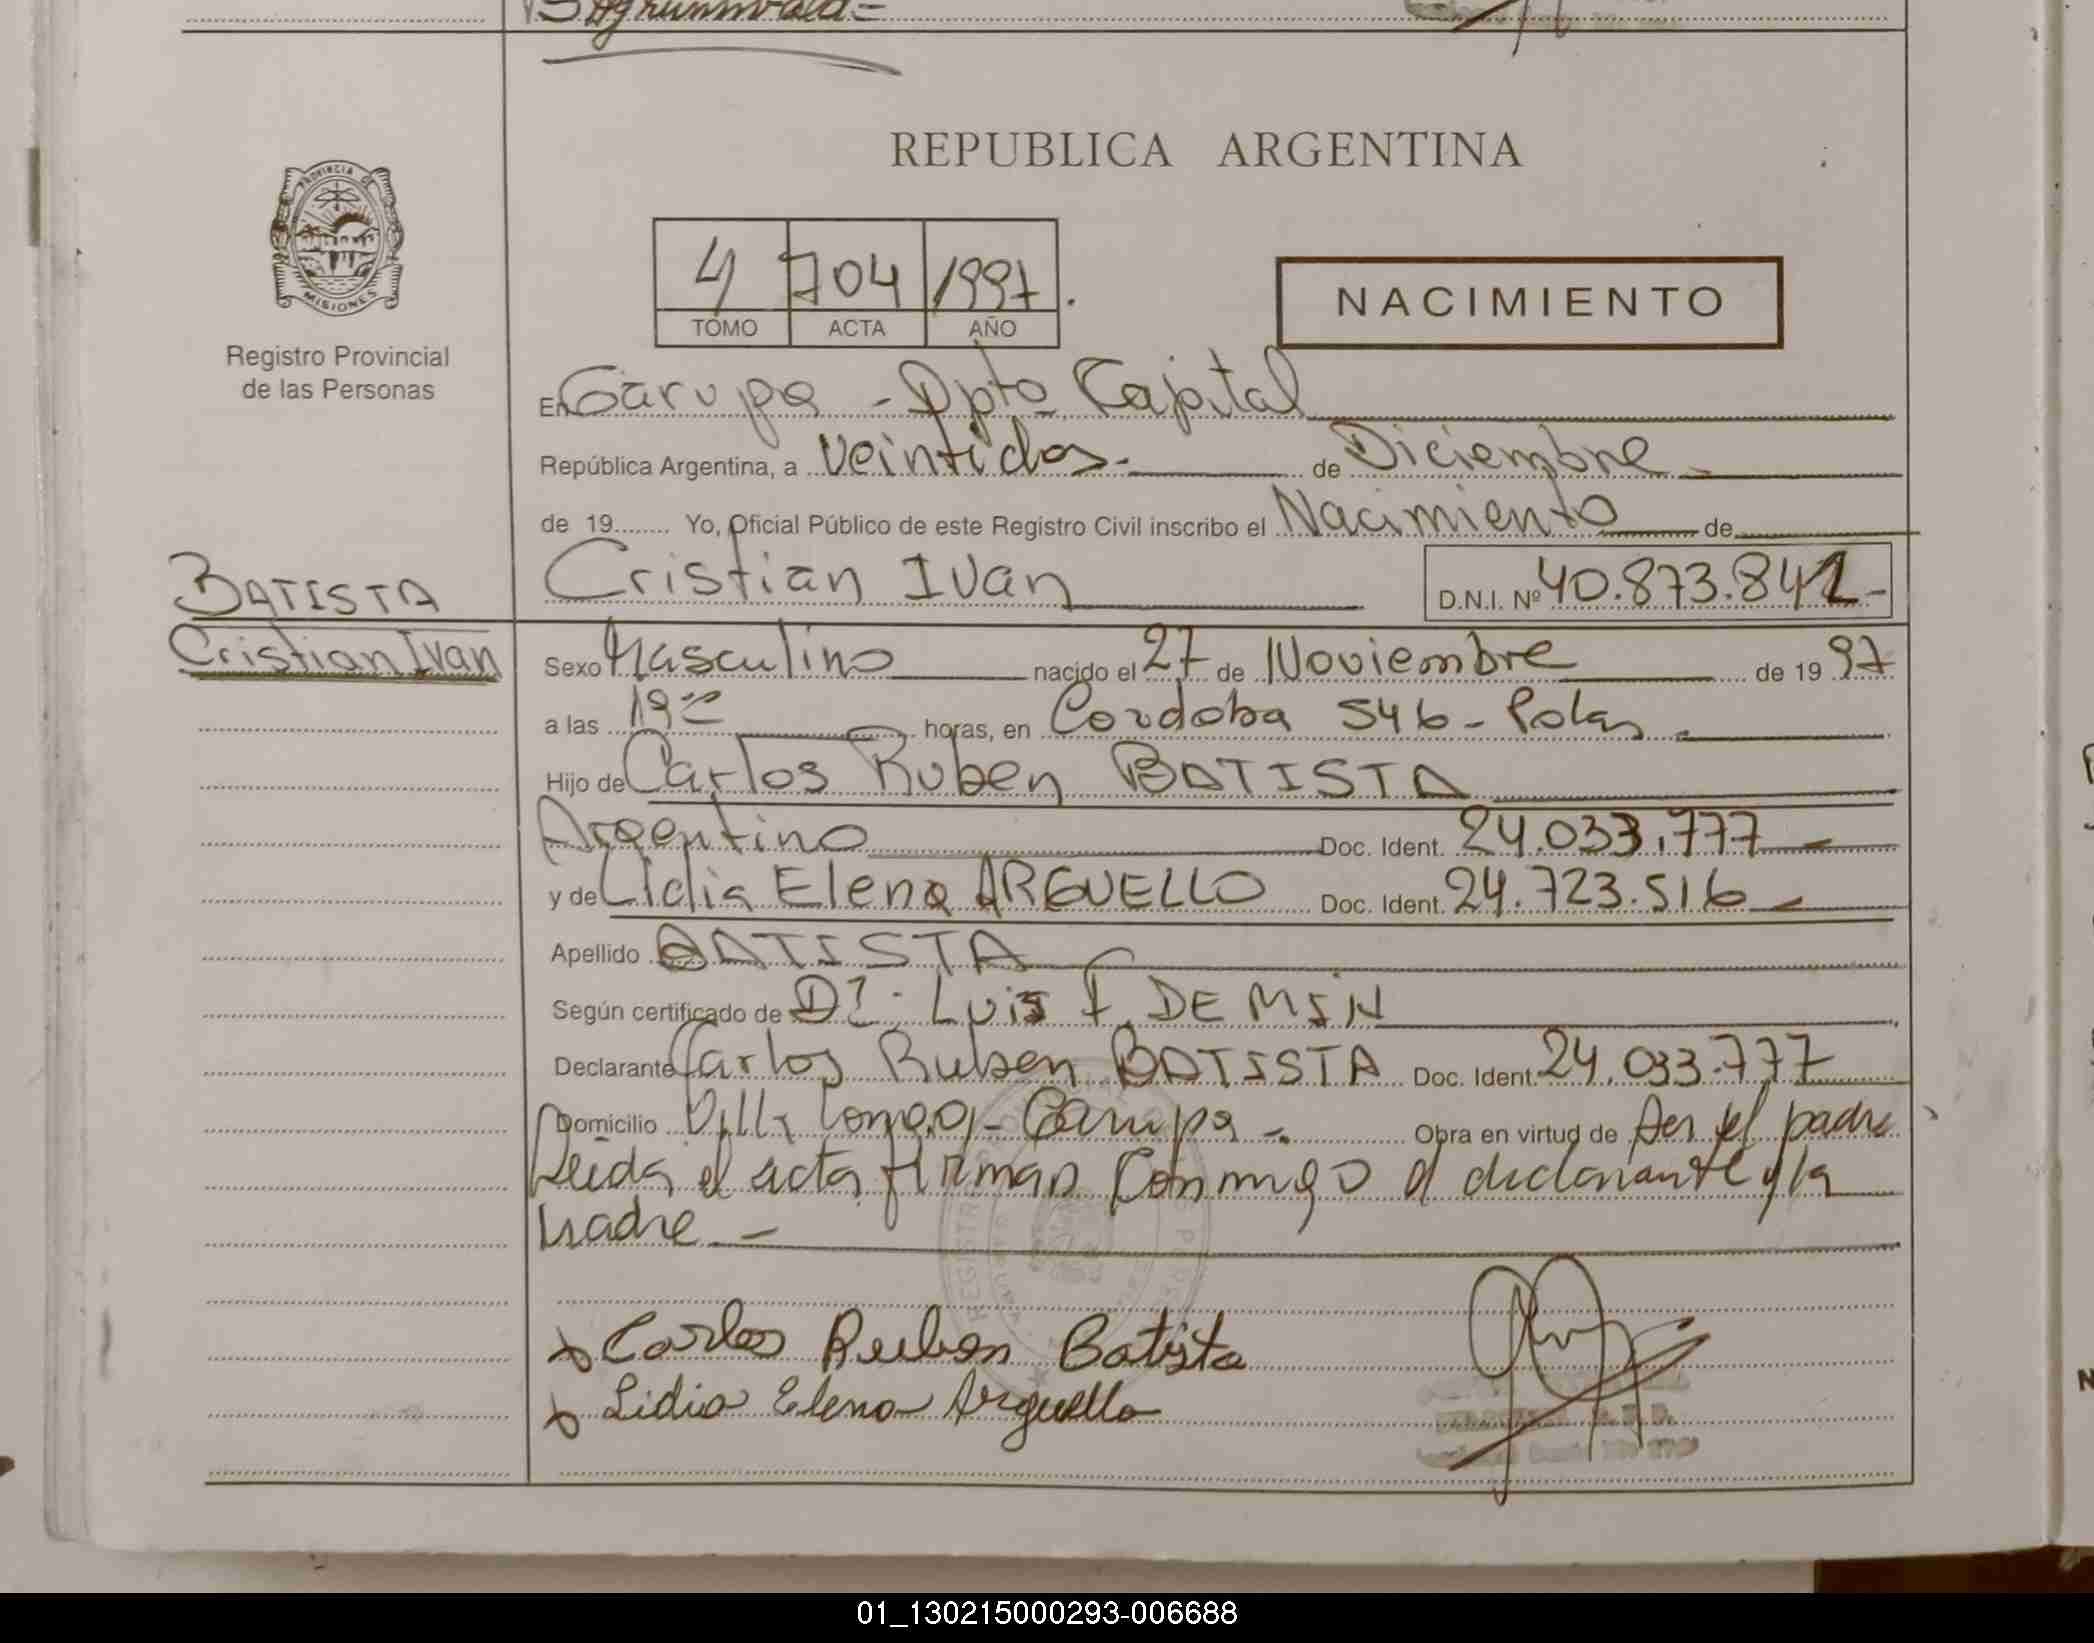 REPUBLICA ARGENTINA
PROVINCIA DE
MISIONES
Registro Provincial
de las Personas
4 704 1997.
TOMO ACTA AÑO
NACIMIENTO
En Garupa - Dpto Capital
República Argentina, a veintidos.- de Diciembre
de 19........ Yo, Oficial Público de este Registro Civil inscribo el Nacimiento de
Cristian Ivan D.N.I. Nº 40.873.841-
BATISTA
Cristian Ivan
Sexo Masculino nacido el 27 de Noviembre de 19 97
a las 19 horas, en Cordoba 546 - Pdas
Hijo de Carlos Ruben BATISTA
Argentino Doc. Ident. 24.033.777
y de Lidia Elena ARGUELLO Doc. Ident. 24.723.516
Apellido BATISTA
Según certificado de Dr. Luis F. DEMIN
Declarante Carlos Ruben BATISTA Doc. Ident. 24.033.777
Domicilio Villa Longa - Garupa - Obra en virtud de Ser el padre
Leida el acta firman conmigo el declarante y la
Madre -
Carlos Ruben Batista
Lidia Elena Arguello
01_130215000293-006688